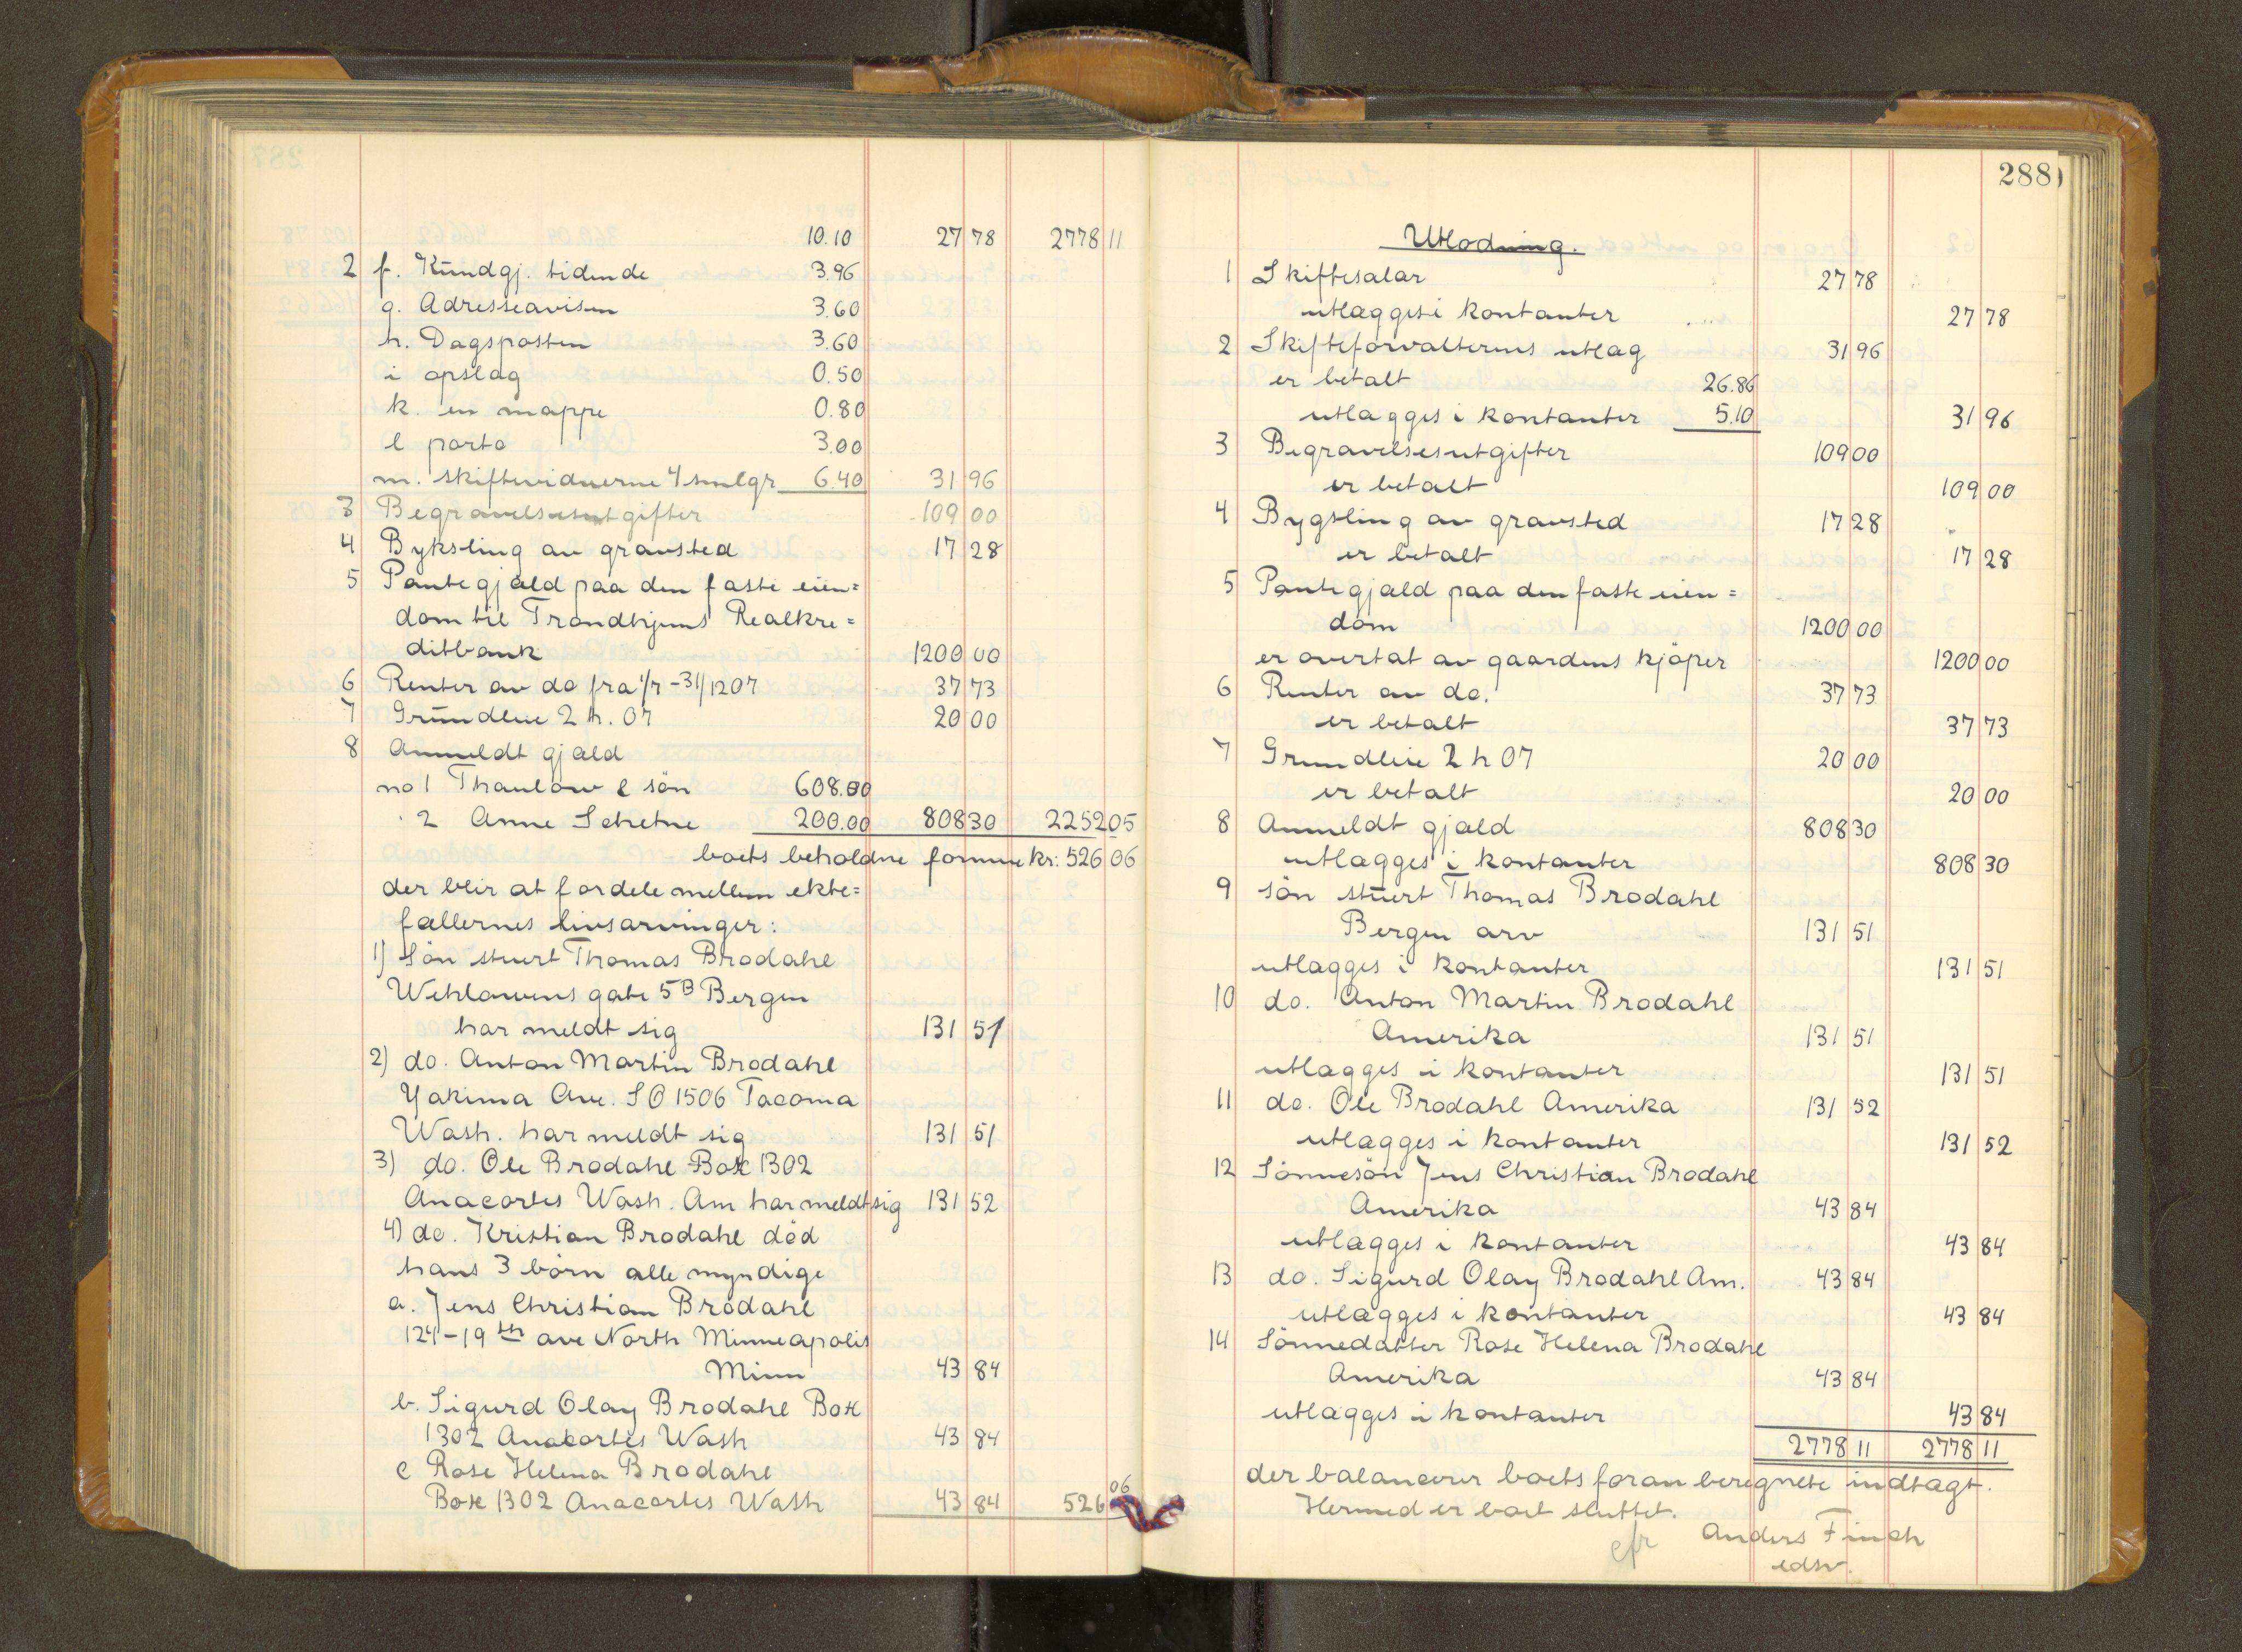 10.10 27 78 2778 11
2 f. Kundgj. tidende 3.96
g. Adresseavisen 3.60
h. Dagsposten 3.60
i opslag 0.50
k. en mappe 0.80
l porto 3.00
m. skiftevidnerne 4 smlgr 6.40 31 96
3 Begravelsesutgifter 109 00
4 Byksling av gravsted 17 28
5 Pantegjæld paa den faste eien=
dom til Trondhjems Realkre=
ditbank 1200 00
6 Renter av do fra 1/7 - 31/12 07 37 73
7 Grundleie 2 h. 07 20 00
8 Anmeldt gjæld
no 1 Thaulow & søn 608.00
2 Anne Schetne 200.00 808 30 2252 05
boets beholdne formue kr: 526 06
der blir at fordele mellem ekte=
fællernes livsarvinger:
1) Søn stuert Thomas Brodahl
Wehlavens gate 5B Bergen
har meldt sig 131 51
2) do. Anton Martin Brodahl
Yakima Ave. SO 1506 Tacoma
Wash. har meldt sig 131 51
3) do. Ole Brodahl Box 1302
Anacortes Wash. Am har meldt sig 131 52
4) do. Kristian Brodahl död
hans 3 børn alle myndige
a. Jens Christian Brodahl
124-19th ave North Minneapolis
Minn 43 84
b. Sigurd Olay Brodahl Box
1302 Anacortes Wash 43 84
c Rose Helena Brodahl
Box 1302 Anacortes Wash 43 84 526 06
288
Utlodning.
1 Skiftesalær 27 78
utlægges i kontanter 27 78
2 Skifteforvalterens utlæg 31 96
er betalt 26.86
utlægges i kontanter 5.10 31 96
3 Begravelsesutgifter 109 00
er betalt 109 00
4 Bygsling av gravsted 17 28
er betalt 17 28
5 Pantegjæld paa den faste eien=
dom 1200 00
er overtat av gaardens kjøper 1200 00
6 Renter av do. 37 73
er betalt 37 73
7 Grundleie 2 h 07 20 00
er betalt 20 00
8 Anmeldt gjæld 808 30
utlægges i kontanter 808 30
9 søn stuert Thomas Brodahl
Bergen arv 131 51
utlægges i kontanter 131 51
10 do. Anton Martin Brodahl
Amerika 131 51
utlægges i kontanter 131 51
11 do. Ole Brodahl Amerika 131 52
utlægges i kontanter 131 52
12 Sønnesøn Jens Christian Brodahl
Amerika 43 84
utlægges i kontanter 43 84
13 do. Sigurd Olay Brodahl Am. 43 84
utlægges i kontanter 43 84
14 Sønnedatter Rose Helena Brodahl
Amerika 43 84
utlægges i kontanter 43 84
2778 11 2778 11
der balancerer boets foran beregnete indtægt.
Hermed er boet sluttet.
cfr Anders Finch
edsv.